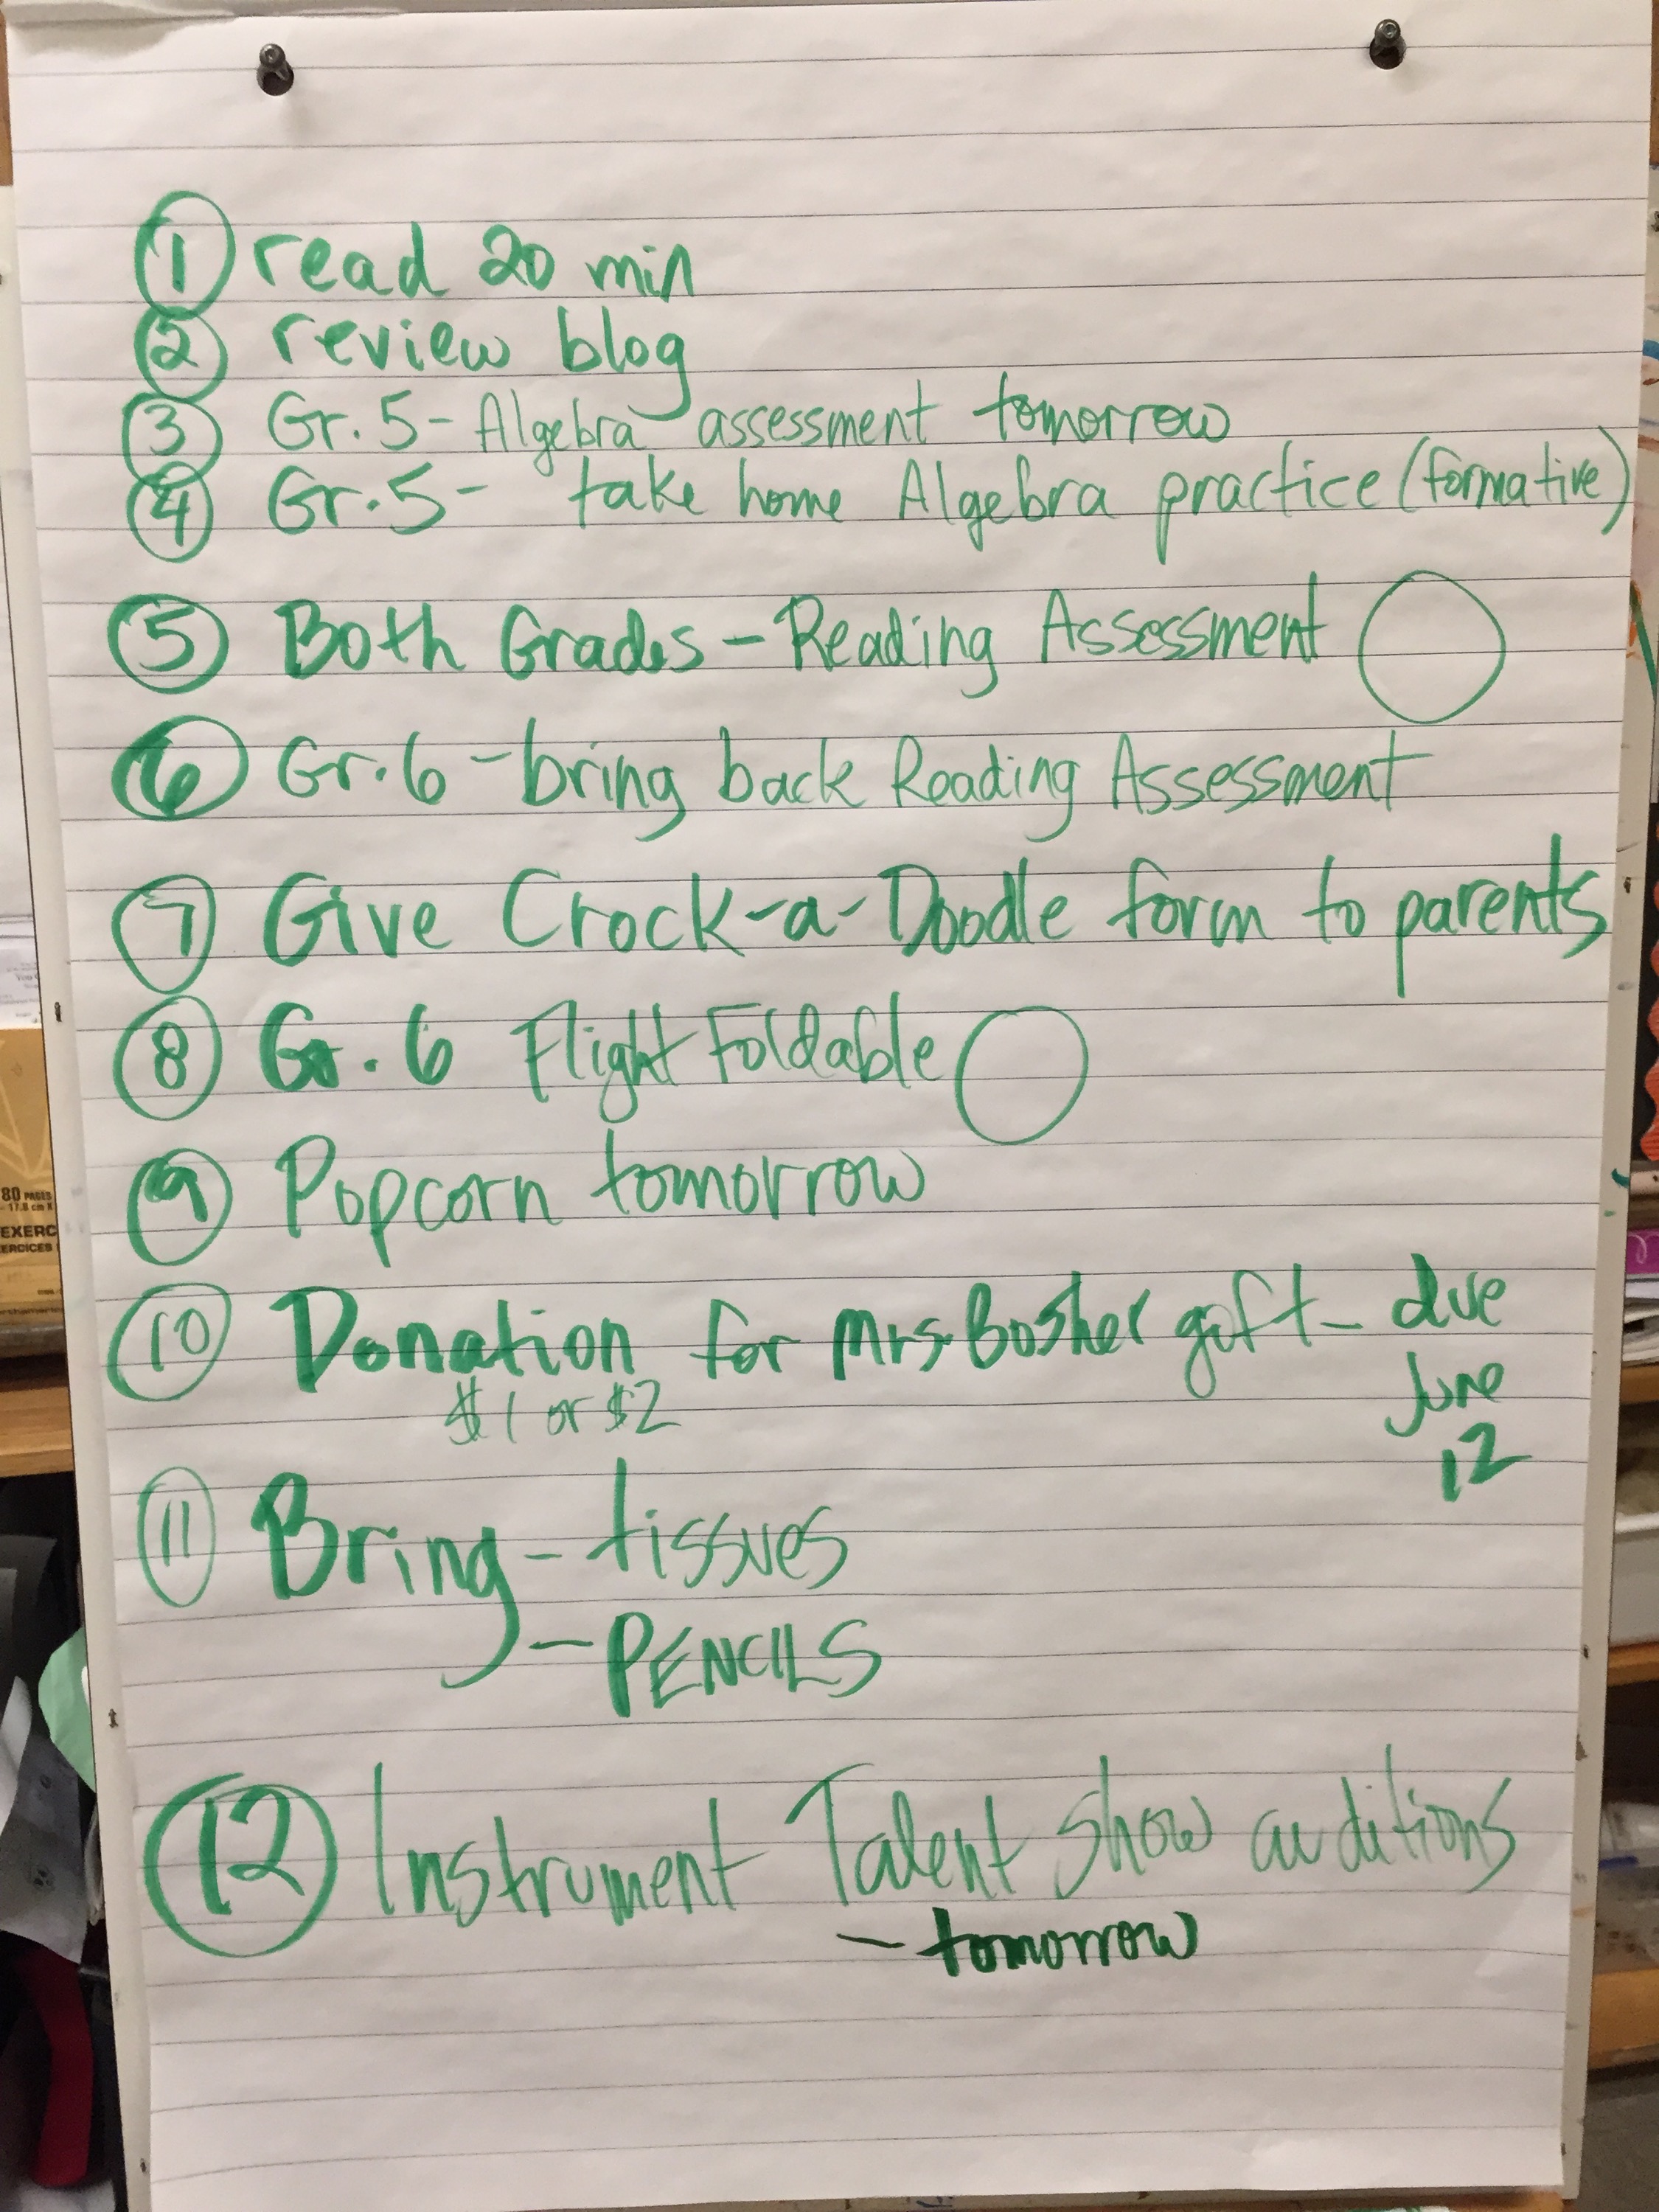 ① read 20 min
② review blog
③ Gr. 5 - Algebra assessment tomorrow
④ Gr. 5 - take home Algebra practice (formative)
⑤ Both Grades - Reading Assessment
⑥ Gr. 6 - bring back Reading Assessment
⑦ Give Crock-a-Doodle form to parents
⑧ Gr. 6 Flight Foldable
⑨ Popcorn tomorrow
⑩ Donation for Mrs. Bosher gift - due
June
12
$1 or $2
⑪ Bring - tissues
- PENCILS
⑫ Instrument Talent Show auditions
- tomorrow
80 PAGES
EXERC
ERCICES